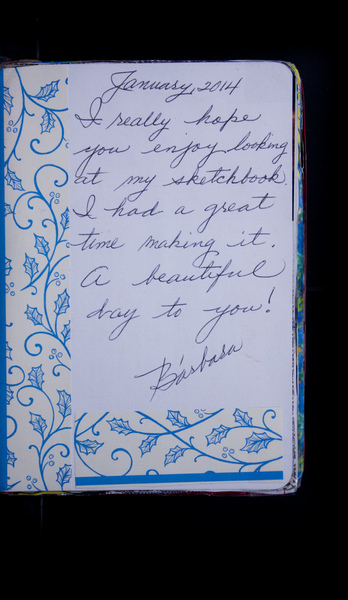 January, 2014
I really hope
you enjoy looking
at my sketchbook.
I had a great
time making it.
A beautiful
day to you!
Bárbara